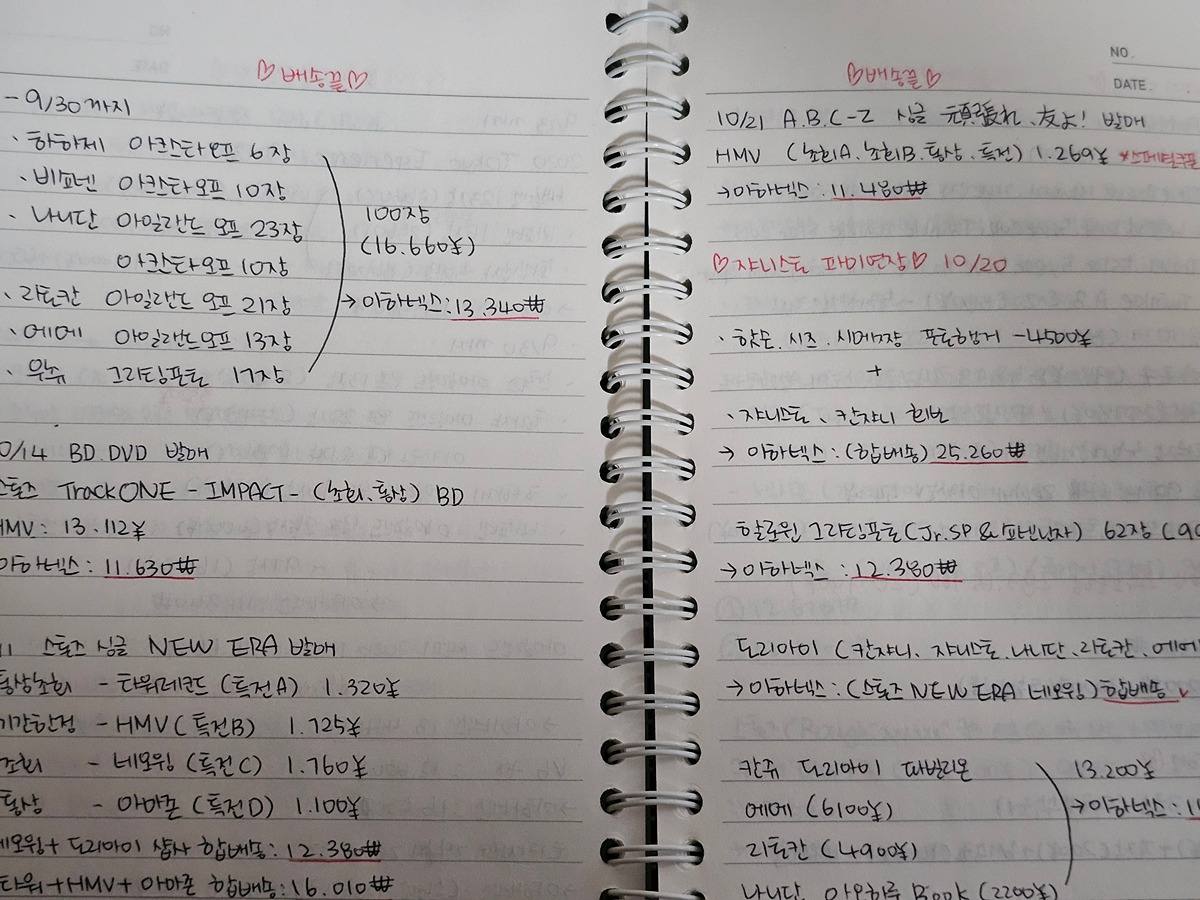 ♡배송끝♡
- 9/30까지
· 하하제 아크스타오프 6장
· 비쇼넨 아크스타오프 10장
· 나니단 아일랜드 오프 23장
아크스타오프 10장
· 라토칸 아일랜드 오프 21장
· 에에 아일랜드오프 13장
· 우쥬 그리팅포토 17장
100장
(16.660¥)
→ 이하넥스 : 13.340₩
0/14 BD.DVD 발매
스톤즈 Track ONE - IMPACT - (초회.통상) BD
HMV : 13.112¥
이하넥스 : 11.630₩
스톤즈 싱글 NEW ERA 발매
통상초회 - 타워레코드 (특전A) 1.320¥
기간한정 - HMV (특전B) 1.725¥
초회 - 네오윙 (특전C) 1.760¥
통상 - 아마존 (특전D) 1.100¥
네오윙 + 도리아이 샵사 합배송 : 12.380₩
타워+HMV+아마존 합배송 : 16.010₩
NO.
DATE.
♡배송끝♡
10/21 A.B.C-Z 싱글 頑張れ、友よ! 발매
HMV (초회A.초회B.통상.특전) 1.269¥ *스페셜쿠폰
→이하넥스 : 11.480₩
♡쟈니스토 파이연장♡ 10/20
· 핫삐. 시즈. 시메쟝 포토행거 -4500¥
+
· 쟈니스토、칸쟈니 회보
→ 이하넥스 : (합배송) 25.260₩
할로윈 그리팅포토 (Jr.SP & 쇼넨닌자) 62장 (
→ 이하넥스 : 12.380₩
도리아이 (칸쟈니. 쟈니스토.나니단.라토칸.에에
→이하넥스 : (스톤즈 NEW ERA 네오윙) 합배송
칸쥬 도리아이 파빌리온
에에 (6100¥)
리토칸 (4900¥)
나니단 아오하루 Book (2200¥)
13.200¥
→이하넥스 :